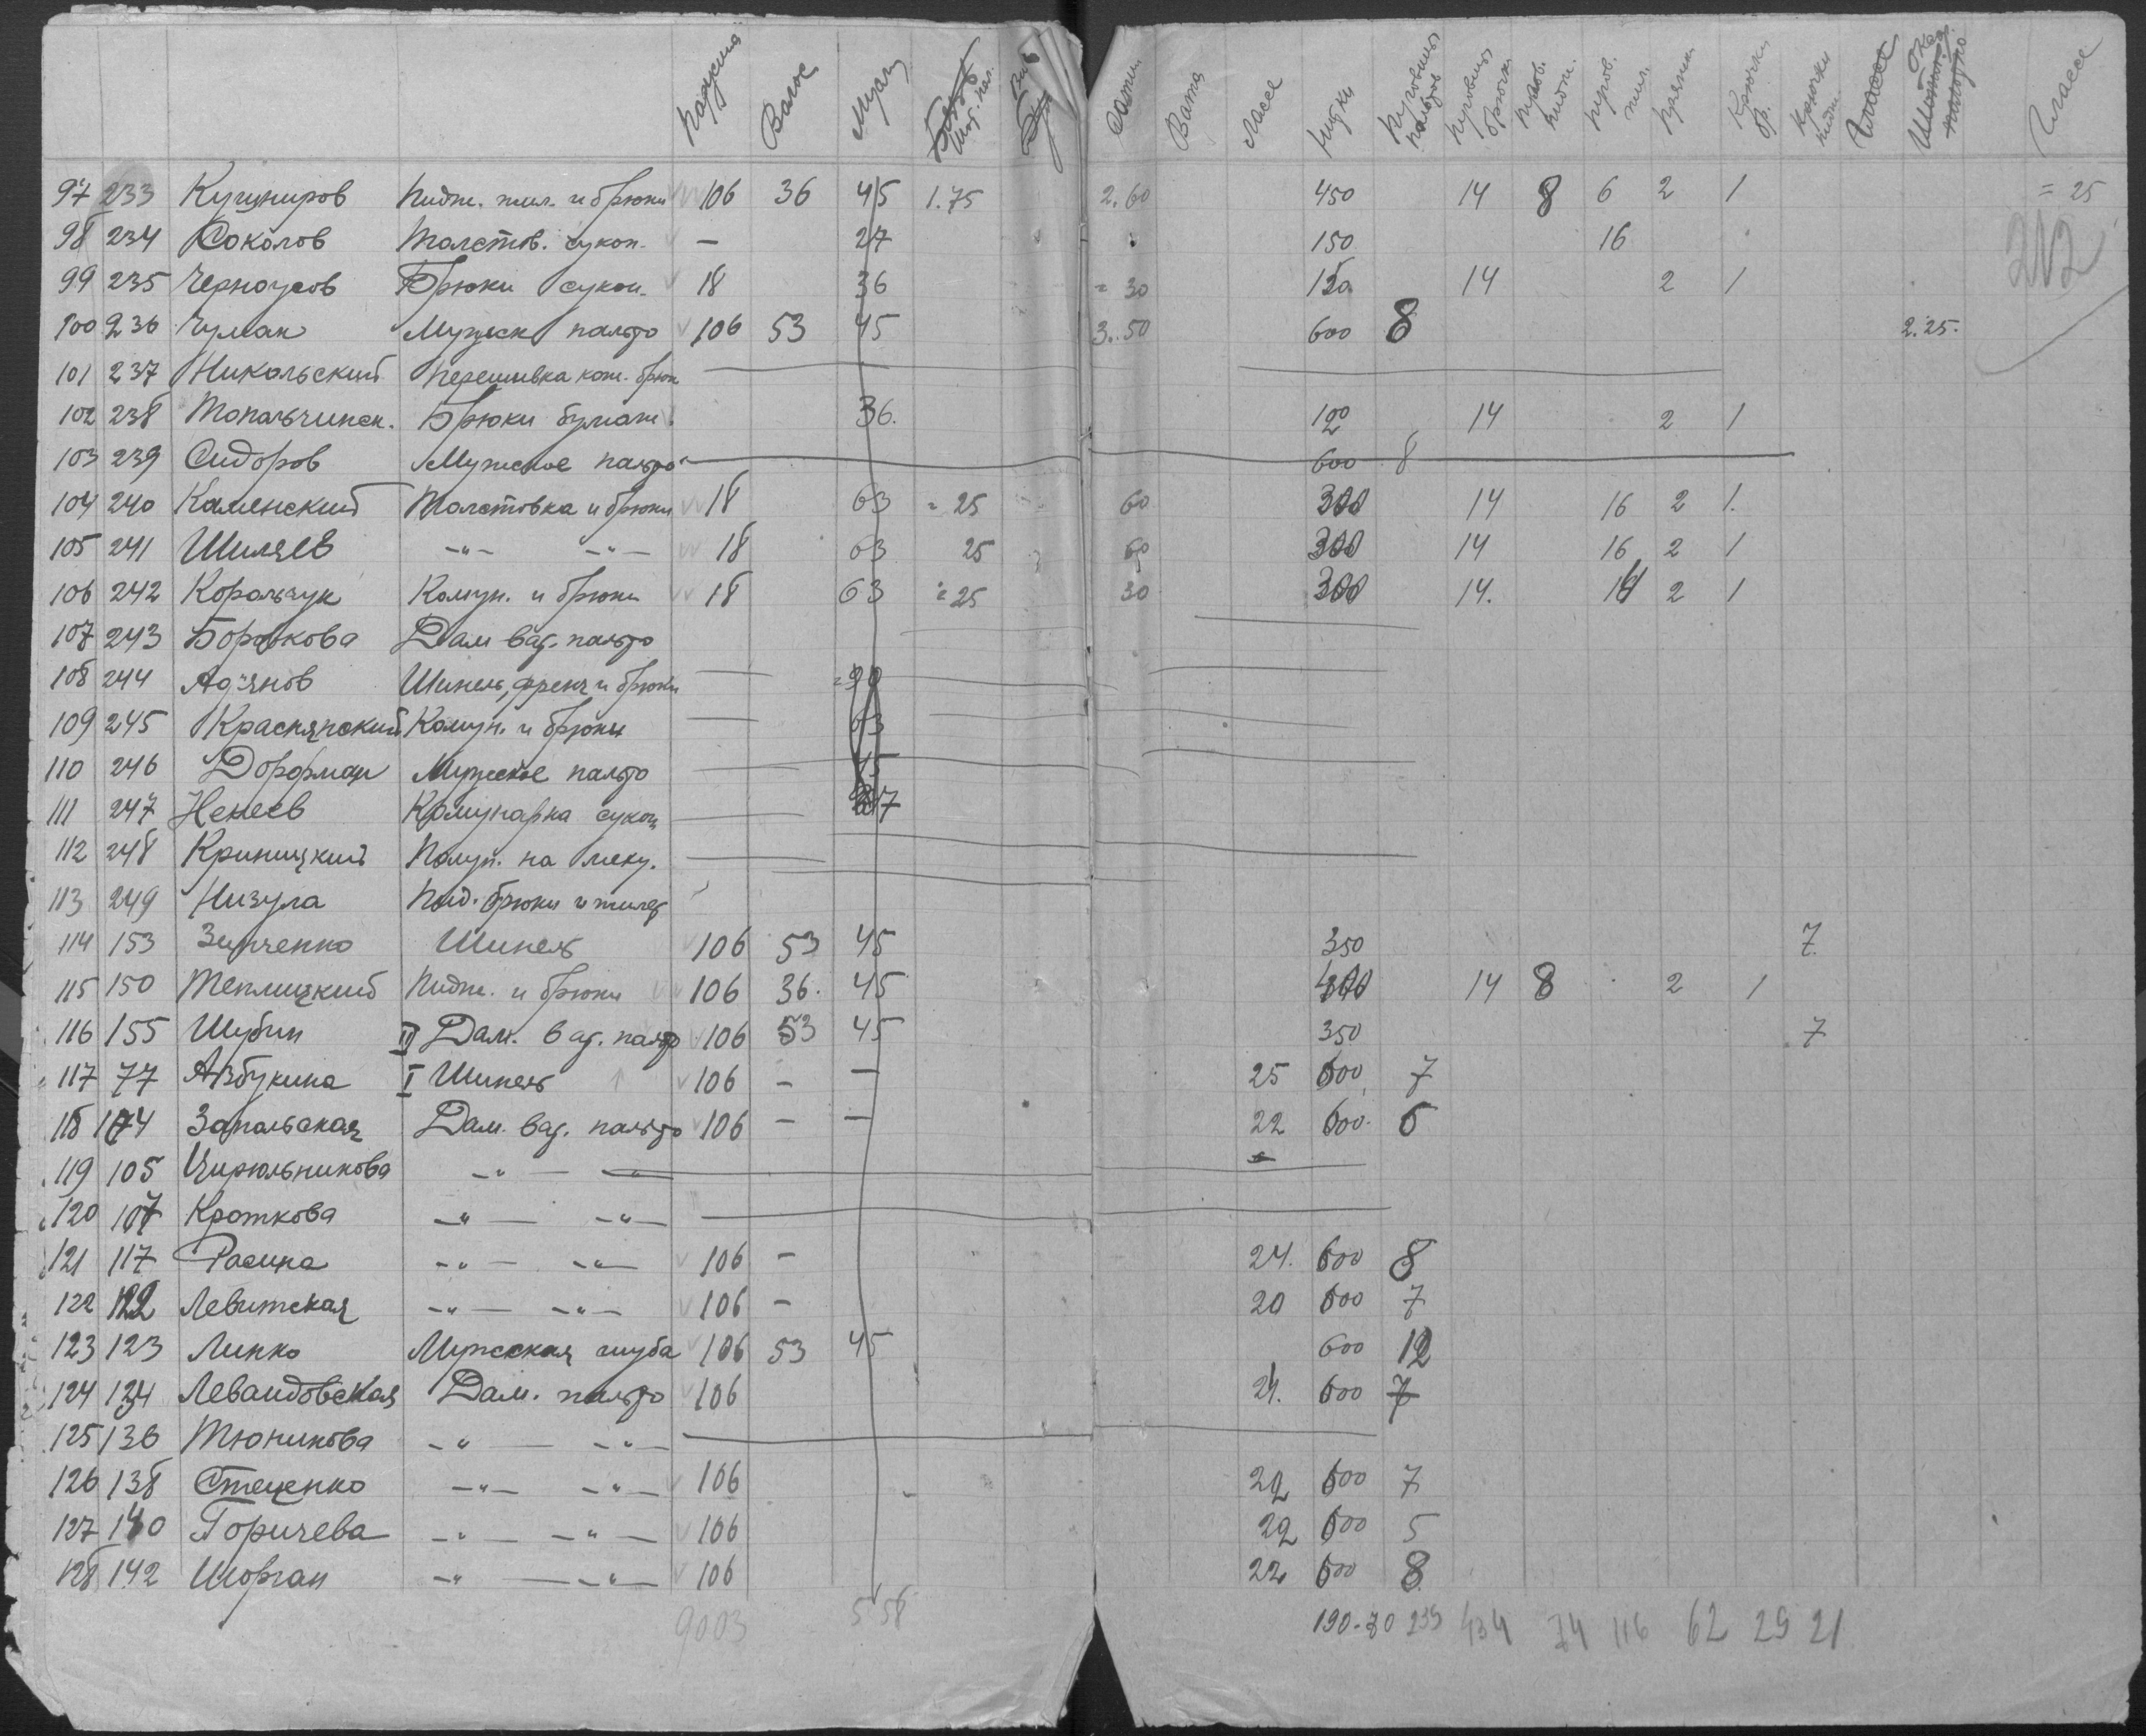 Волос
Сатин Вата Лассе Нитки Пуговицы пальтов. Пуговицы брючн. Пугов. пидж. Пугов. жил. Пряжки Крючки бр. Крючки Глассе
97 233 Кушниров Пидж. жил. и брюки 106 36 45 1.75 2.60 450 14 8 6 2 1 = 25
98 234 Соколов Толстов. сукон. — 27 150 16
99 235 Черноусов Брюки сукон. 18 36 = 30 150 14 2 1
100 236 Чумак Мужск пальто 106 53 45 3.50 600 8 2.25.
101 237 Никольский Перешивка кож. брюк
102 238 Топальчинск. Брюки бумаж. 36. 120 14 2 1
103 239 Сидоров Мужское пальто 600 8
104 240 Каменский Толстовка и брюки 18 63 = 25 60 300 14 16 2 1.
105 241 Шиляев -"- -"- 18 63 25 60 300 14 16 2 1
106 242 Корольчук Комун. и брюки 18 63 = 25 30 300 14. 2 1
107 243 Дам ват. пальто
108 244 Шинель, френч и брюки = 90
109 245 Комун. и брюки 63
110 246 Дорфман Мужское пальто 45
111 247 Ненеев Комунарка сукон
112 248 Криницкий
113 249 Низула Пид. брюки и жилет
114 153 Зинченко Шинель 106 53 45 350 7
115 150 Теплицкий Пидж. и брюки 106 36. 45 400 14 8 2 1
116 155 Шубин II Дам. ват. пальто 106 53 45 350 7
117 77 Азбукина I Шинель 106 — — 25 600 7
118 174 Запольская Дам. ват. пальто 106 — — 22 600. 6
119 105 Цирюльникова -"- -"-
120 107 Кроткова -"- -"-
121 117 Расина -"- -"- 106 — 24. 600 8
122 122 Левитская -"- -"- 106 — 20 600 7
123 123 Липко Мужская шуба 106 53 45 600 12
124 134 Левандовская Дам. пальто 106 24. 600 7
125 136 Тюникова -"- -"-
126 138 Стеценко -"- -"- 106 22 600 7
127 140 Горичева -"- -"- 106 22 600 5
128 142 Шорган -"- -"- 106 22 600 8
9003 558 190-30 239 434 74 116 62 29 21
212